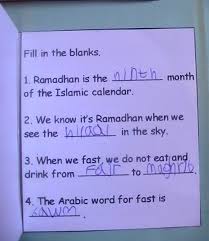 Fill in the blanks.
1. Ramadhan is the ninth month
of the Islamic calendar.
2. We know it's Ramadhan when we
see the hilaal in the sky.
3. When we fast, we do not eat and
drink from Fajr to maghrib.
4. The Arabic word for fast is
sawm.